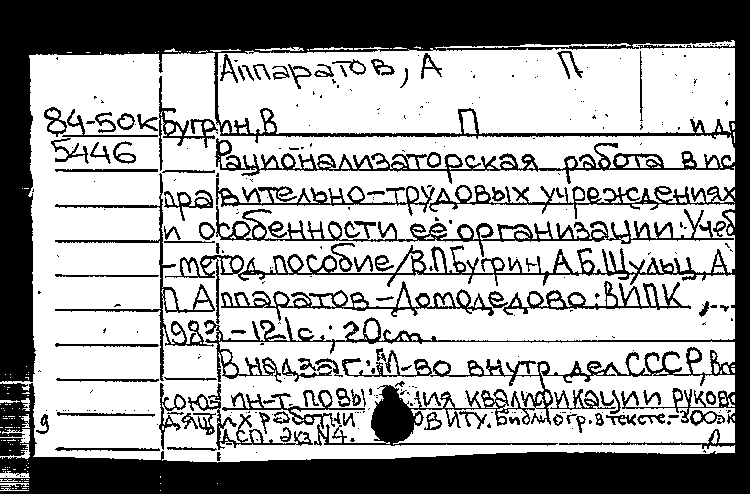 Аппаратов, А П
84-50К Бугрин, В П и др
5446 Рационализаторская работа в ис
правительно-трудовых учреждениях
и особенности её организации: Учеб
-метод. пособие/В.П.Бугрин, А.Б.Шульц, А.
П. Аппаратов - Домодедово: ВИПК ,...
1983. - 121с.; 20см.
В надзаг.: М-во внутр. дел СССР, Все
союз. ин-т. повы ния квалификации руково
дящих работни ов ИТУ. Библиогр. в тексте. - 300эк
ДСП. Экз.N4.
9